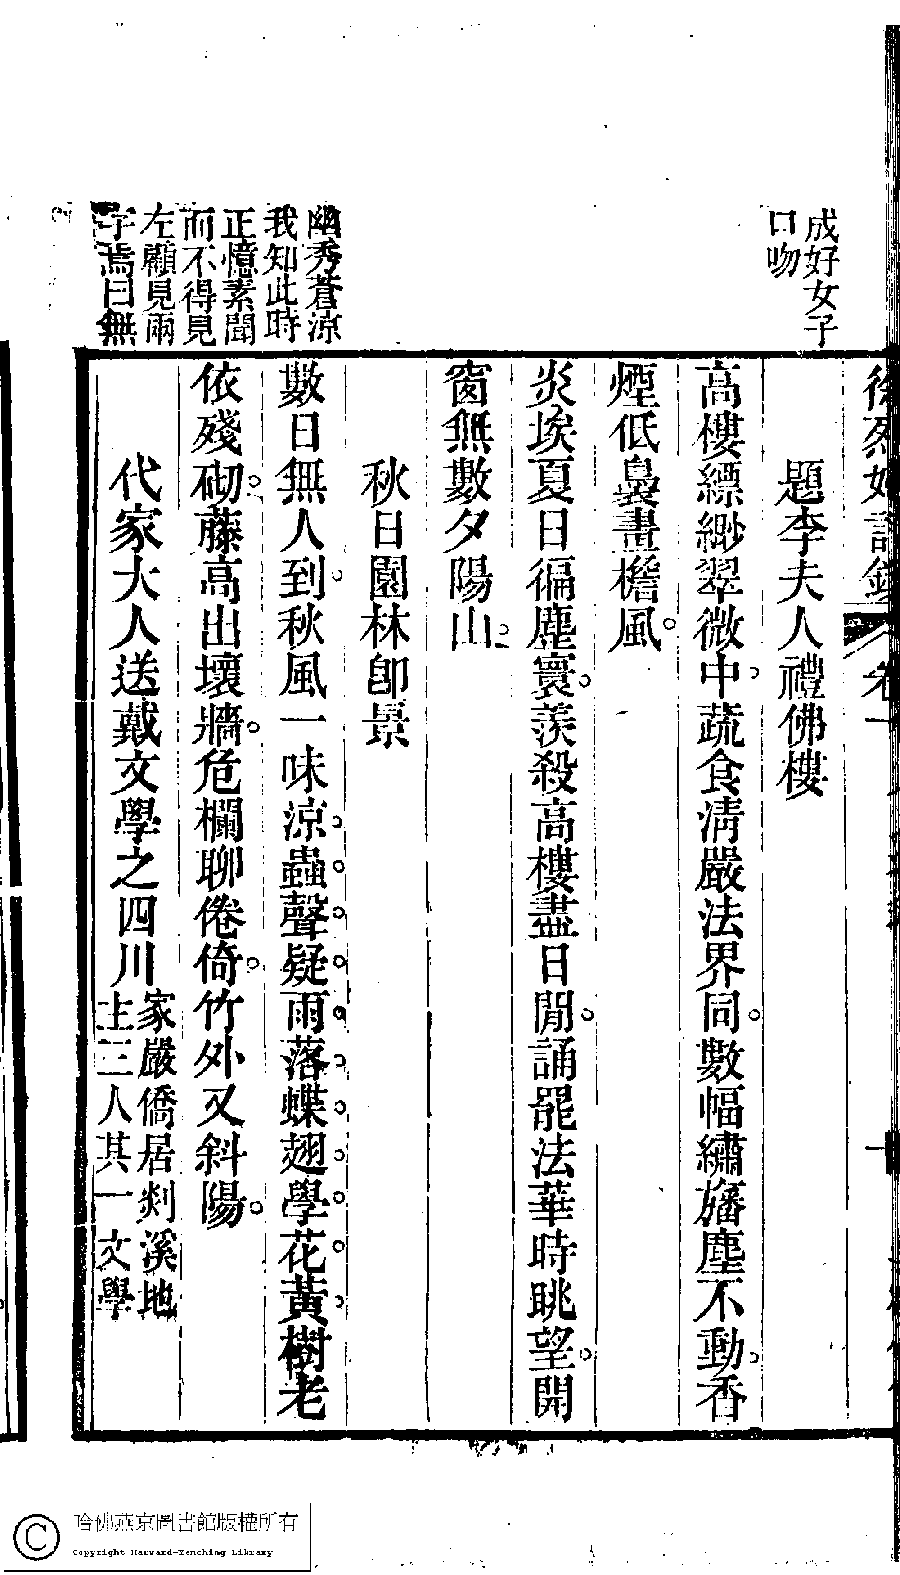 成好女子
口吻
幽秀蒼涼
我知此時
正憶素聞
而不得見
左顧見兩
字焉曰無
題李夫人禮佛樓
高樓縹緲翠微中蔬食淸嚴法界同數幅繡旛塵不動香
煙低裊畫檐風
炎埃夏日徧塵寰羨殺高樓盡日閒誦罷法華時眺望開
窗無數夕陽山
秋日園林卽景
數日無人到秋風一味涼蟲聲疑雨落蝶翅學花黃樹老
依殘砌藤高出壞牆危欄聊倦倚竹外又斜陽
代家大人送戴文學之四川
家嚴僑居剡溪地
主三人其一文學
哈佛燕京圖書館版權所有
Copyright Harvard-Yenching Library